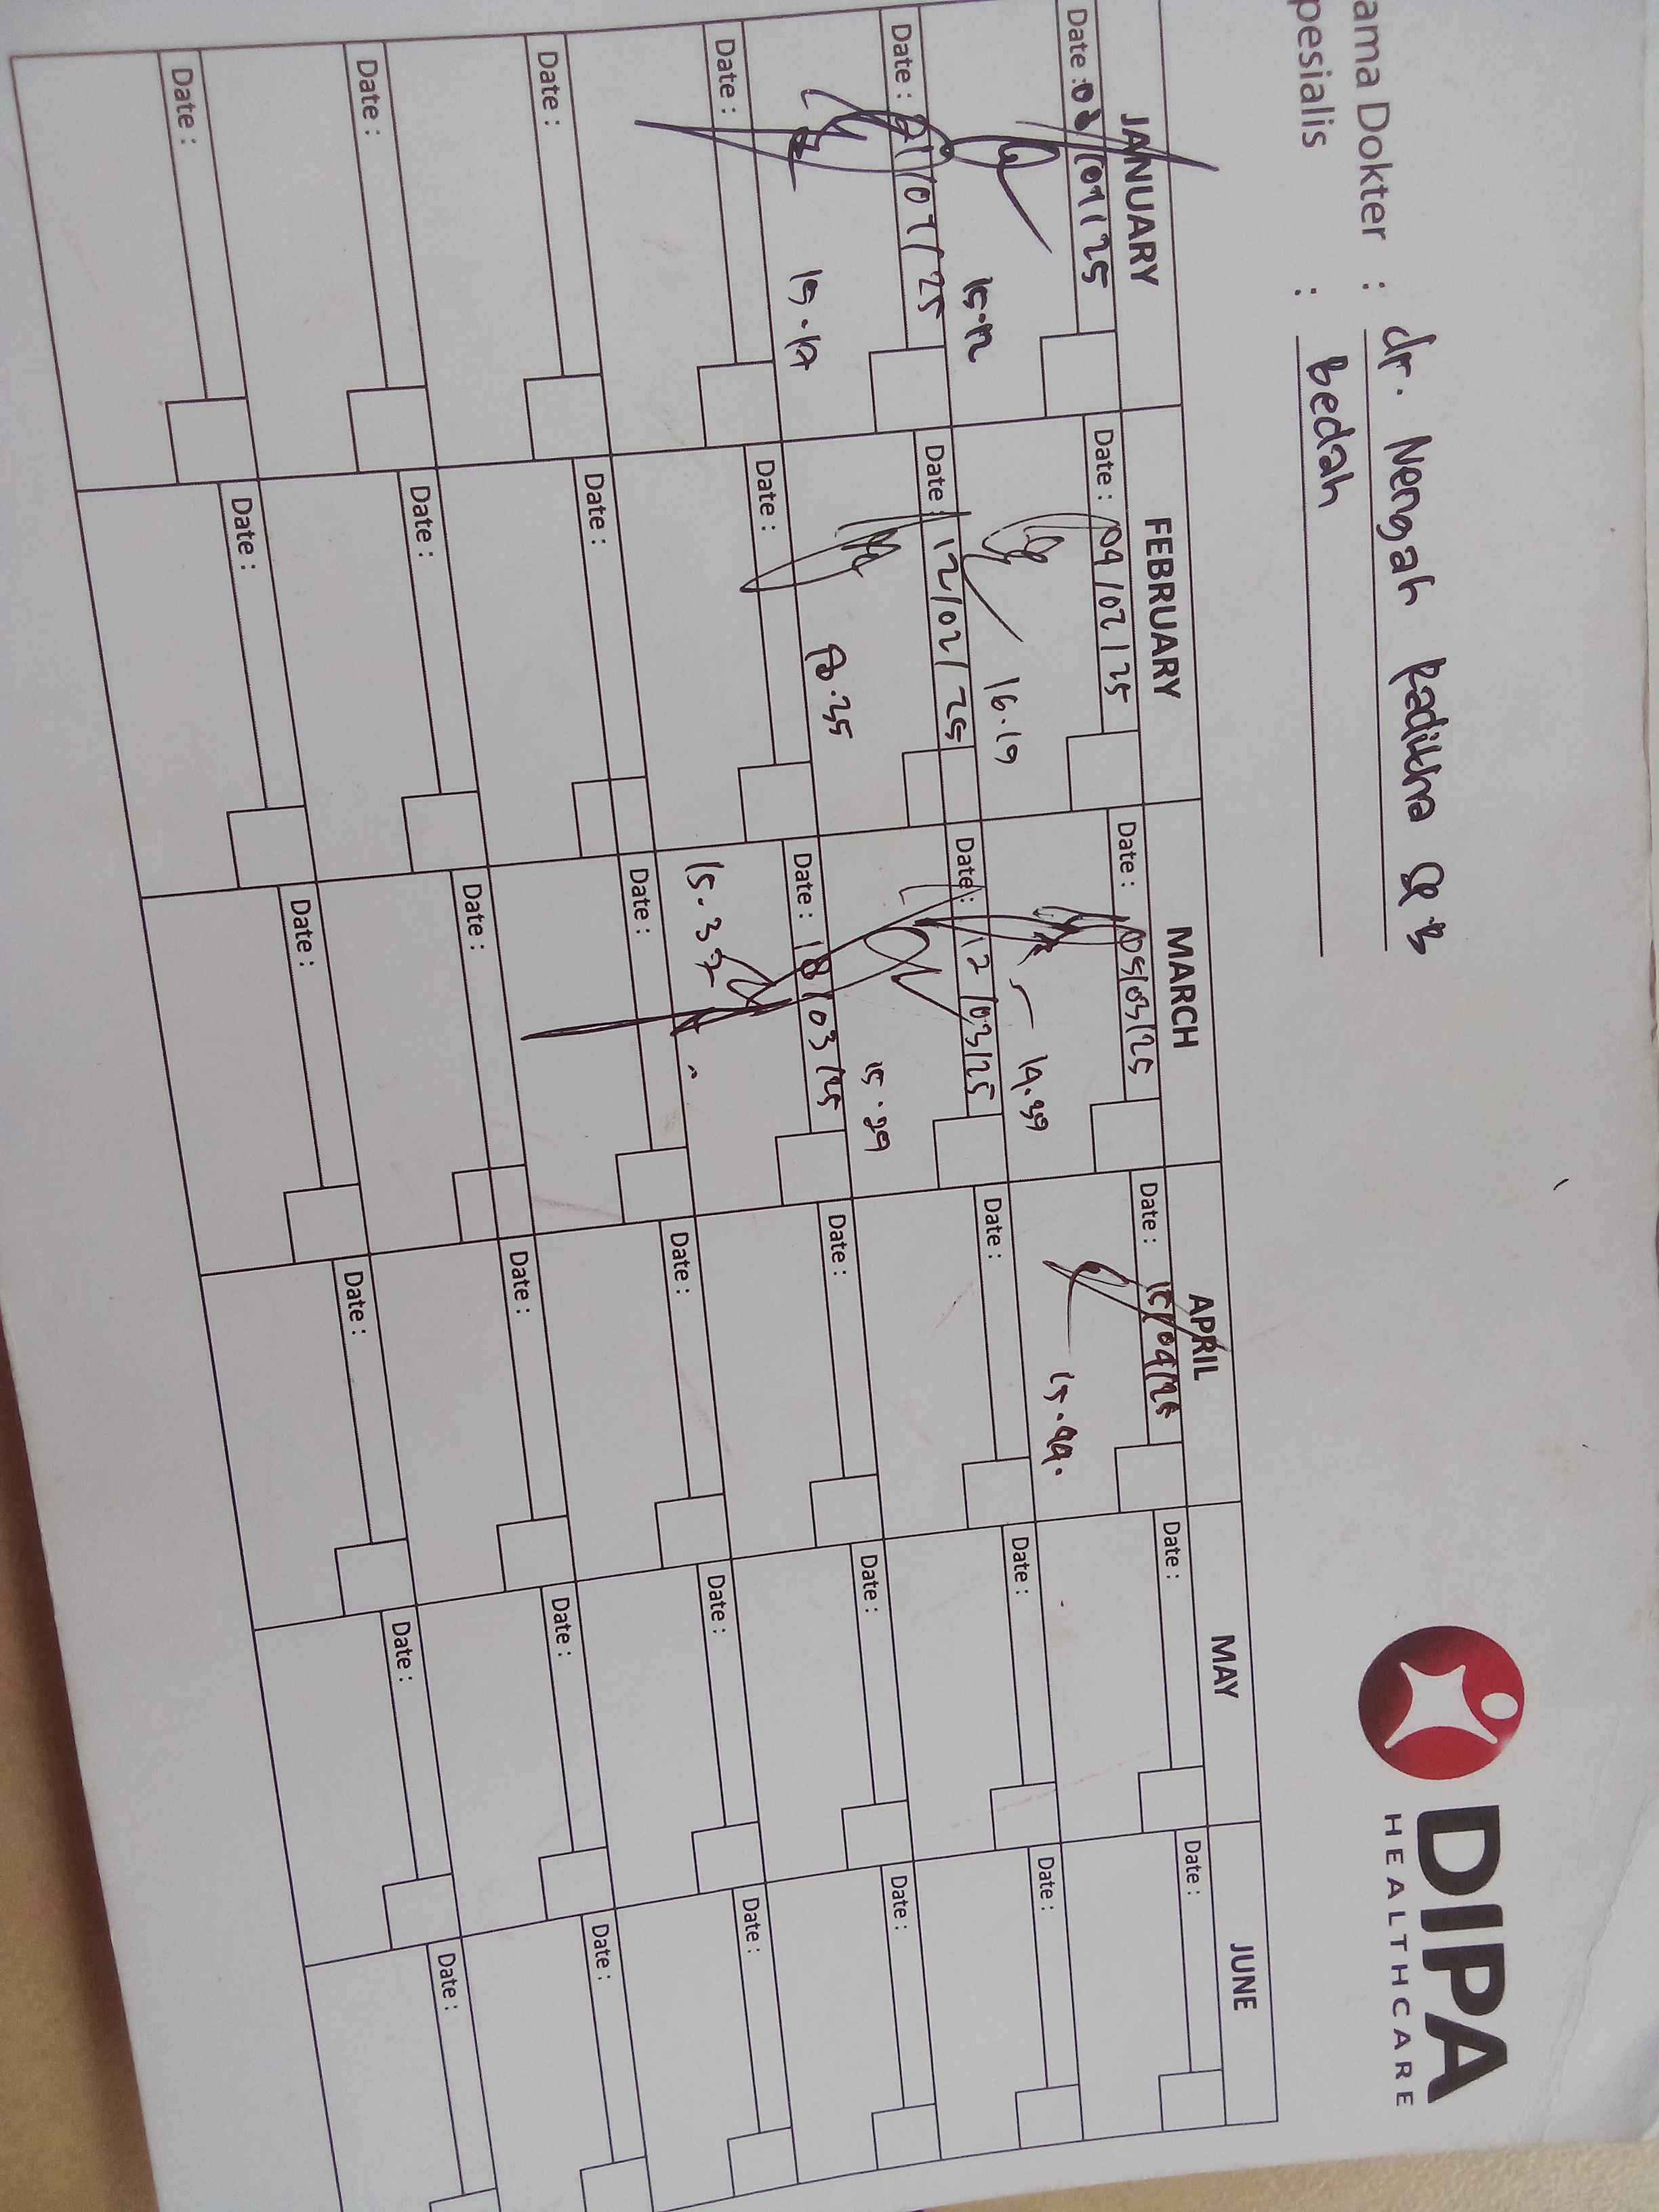 DIPA
HEALTHCARE
ama Dokter : dr. Nengah
pesialis : Bedah
JANUARY FEBRUARY MARCH APRIL MAY JUNE
Date : /01/25 Date : 04/02/25 Date : 05/03/25 Date : 15/04/25 Date : Date :
15.12 16.19 14.39 15.44.
Date : 21/01/25 Date : 12/02/25 Date : 12/03/25 Date : Date : Date :
15.17 .35 15.29
Date : Date : Date : 18/03/25 Date : Date : Date :
15.37
Date : Date : Date : Date : Date : Date :
Date : Date : Date : Date : Date : Date :
Date : Date : Date : Date : Date : Date :